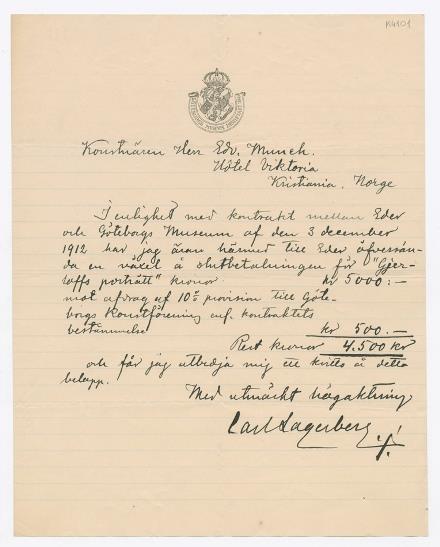 K4101
Konstnären Herr Edv. Munch.
Hôtel Viktoria
Kristiania. Norge
I enlighet med kontraktet mellan Eder
och Göteborgs Museum af den 3 december
1912 har jag äran härmed till Eder öfversän-
da en växel å slutbetalningen för "Gjer-
löffs porträtt" kronor kr 5000:-
mot afdrag af 10% provision till Göte-
borgs Konstförening enl. kontraktets
bestämmelse kr 500.-
Rest kronor 4.500 kr
och får jag utbedja mig ett kvitto å detta
belopp.
Med utmärkt högaktning
Carl Lagerberg